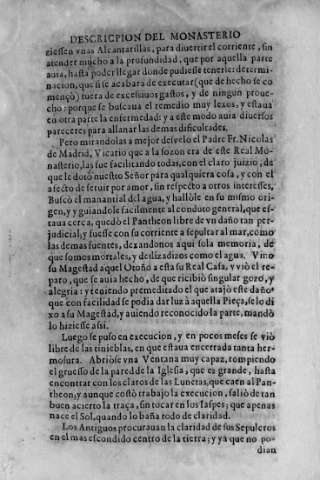 DESCRICPION DEL MONASTERIO
ziessen vnas Alcantarillas, para diuertir el corriente, sin
atender mucho a la profundidad, que por aquella parte
auia, hasta poder llegar donde pudiesse tenerle: determi-
nacion, que si se acabara de executar (que de hecho se co
mençò) fuera de excessiuos gastos, y de ningun proue-
cho: porque se buscaua el remedio muy lexos, y estaua
en otra parte la enfermedad: y a este modo auia diuersos
pareceres para allanar las demas dificultades.
Pero mirandolas a mejor desvelo el Padre Fr. Nicolas
de Madrid, Vicario que a la sazon era de este Real Mo-
nasterio, las fue facilitando todas, con el claro juizio, de
que le dotò nuestro Señor para qualquiera cosa, y con el
afecto de seruir por amor, sin respecto a otros interesses,
Buscò el manantial del agua, y hallòle en su mismo ori-
gen, y guiandole facilmente al conduto general, que es-
taua cerca, quedò el Pantheon libre de vn daño tan per-
judicial, y fuesse con su corriente a sepultar al mar, como
las demas fuentes, dexandonos aqui sola memoria, de
que somos mortales, y deslizadizos como el agua. Vino
su Magestad aquel Otoño a esta su Real Casa, y viò el re-
paro, que se auia hecho, de que ricibiò singular gozo, y
alegria: y teniendo premeditado el que atajò este daño
que con facilidad se podia dar luz à aquella Pieça, se lo di
xo a su Magestad, y auiendo reconocido la parte, mandò
lo hiziesse assi.
Luego se puso en execucion, y en pocos meses se viò
libre de las tinieblas, en que estaua encerrada tanta her-
mosura. Abriòse vna Ventana muy capaz, rompiendo
el gruesso de la pared de la Iglesia, que es grande, hasta
encontrar con los claros de las Lunetas, que caen al Pan-
theon; y aunque costò trabajo la execucion, saliò de tan
buen acierto la traça, sin tocar en los Iaspes; que apenas
nace el Sol, quando lo baña todo de claridad.
Los Antiguos procurauan la claridad de sus Sepulcros
en el mas escondido centro de la tierra; y ya que no po-
dian